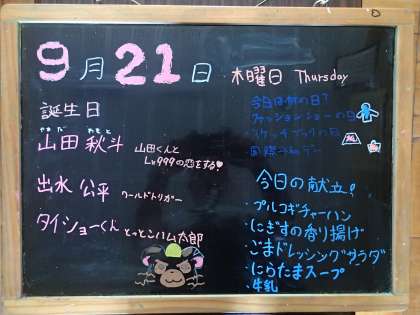 9月21日 木曜日 Thursday
誕生日
やまだ あきと
山田 秋斗 山田くんと
Lv999の恋をする♥
出水 公平 ワールドトリガー
タイショーくん とっとこハム太郎
今日は何の日?
ファッションショーの日
スケッチブックの日
国際平和デー
今日の献立!
・プルコギチャーハン
・にぎすの香り揚げ
・ごまドレッシングサラダ
・にらたまスープ
・牛乳